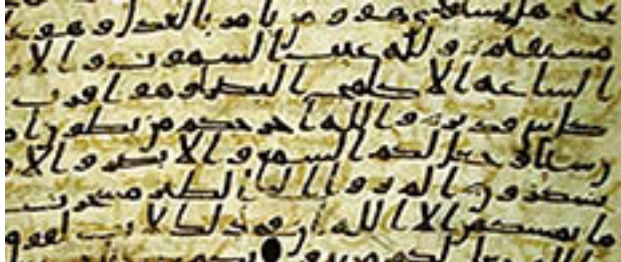 هل يستوى هو و من يامر بالعدل و هو
مستقيم و لله غيب السموت و الا
الساعه الا كلمح البصر و هو اقرب
قدير و الله اخرجكم من بطون
و جعل لكم السمع و الابصر و الا
تشكرون الم يروا الى الطير مسخرت
ما يمسكهن الا الله ان فى ذلك لايت لقو
و الله جعل لكم من